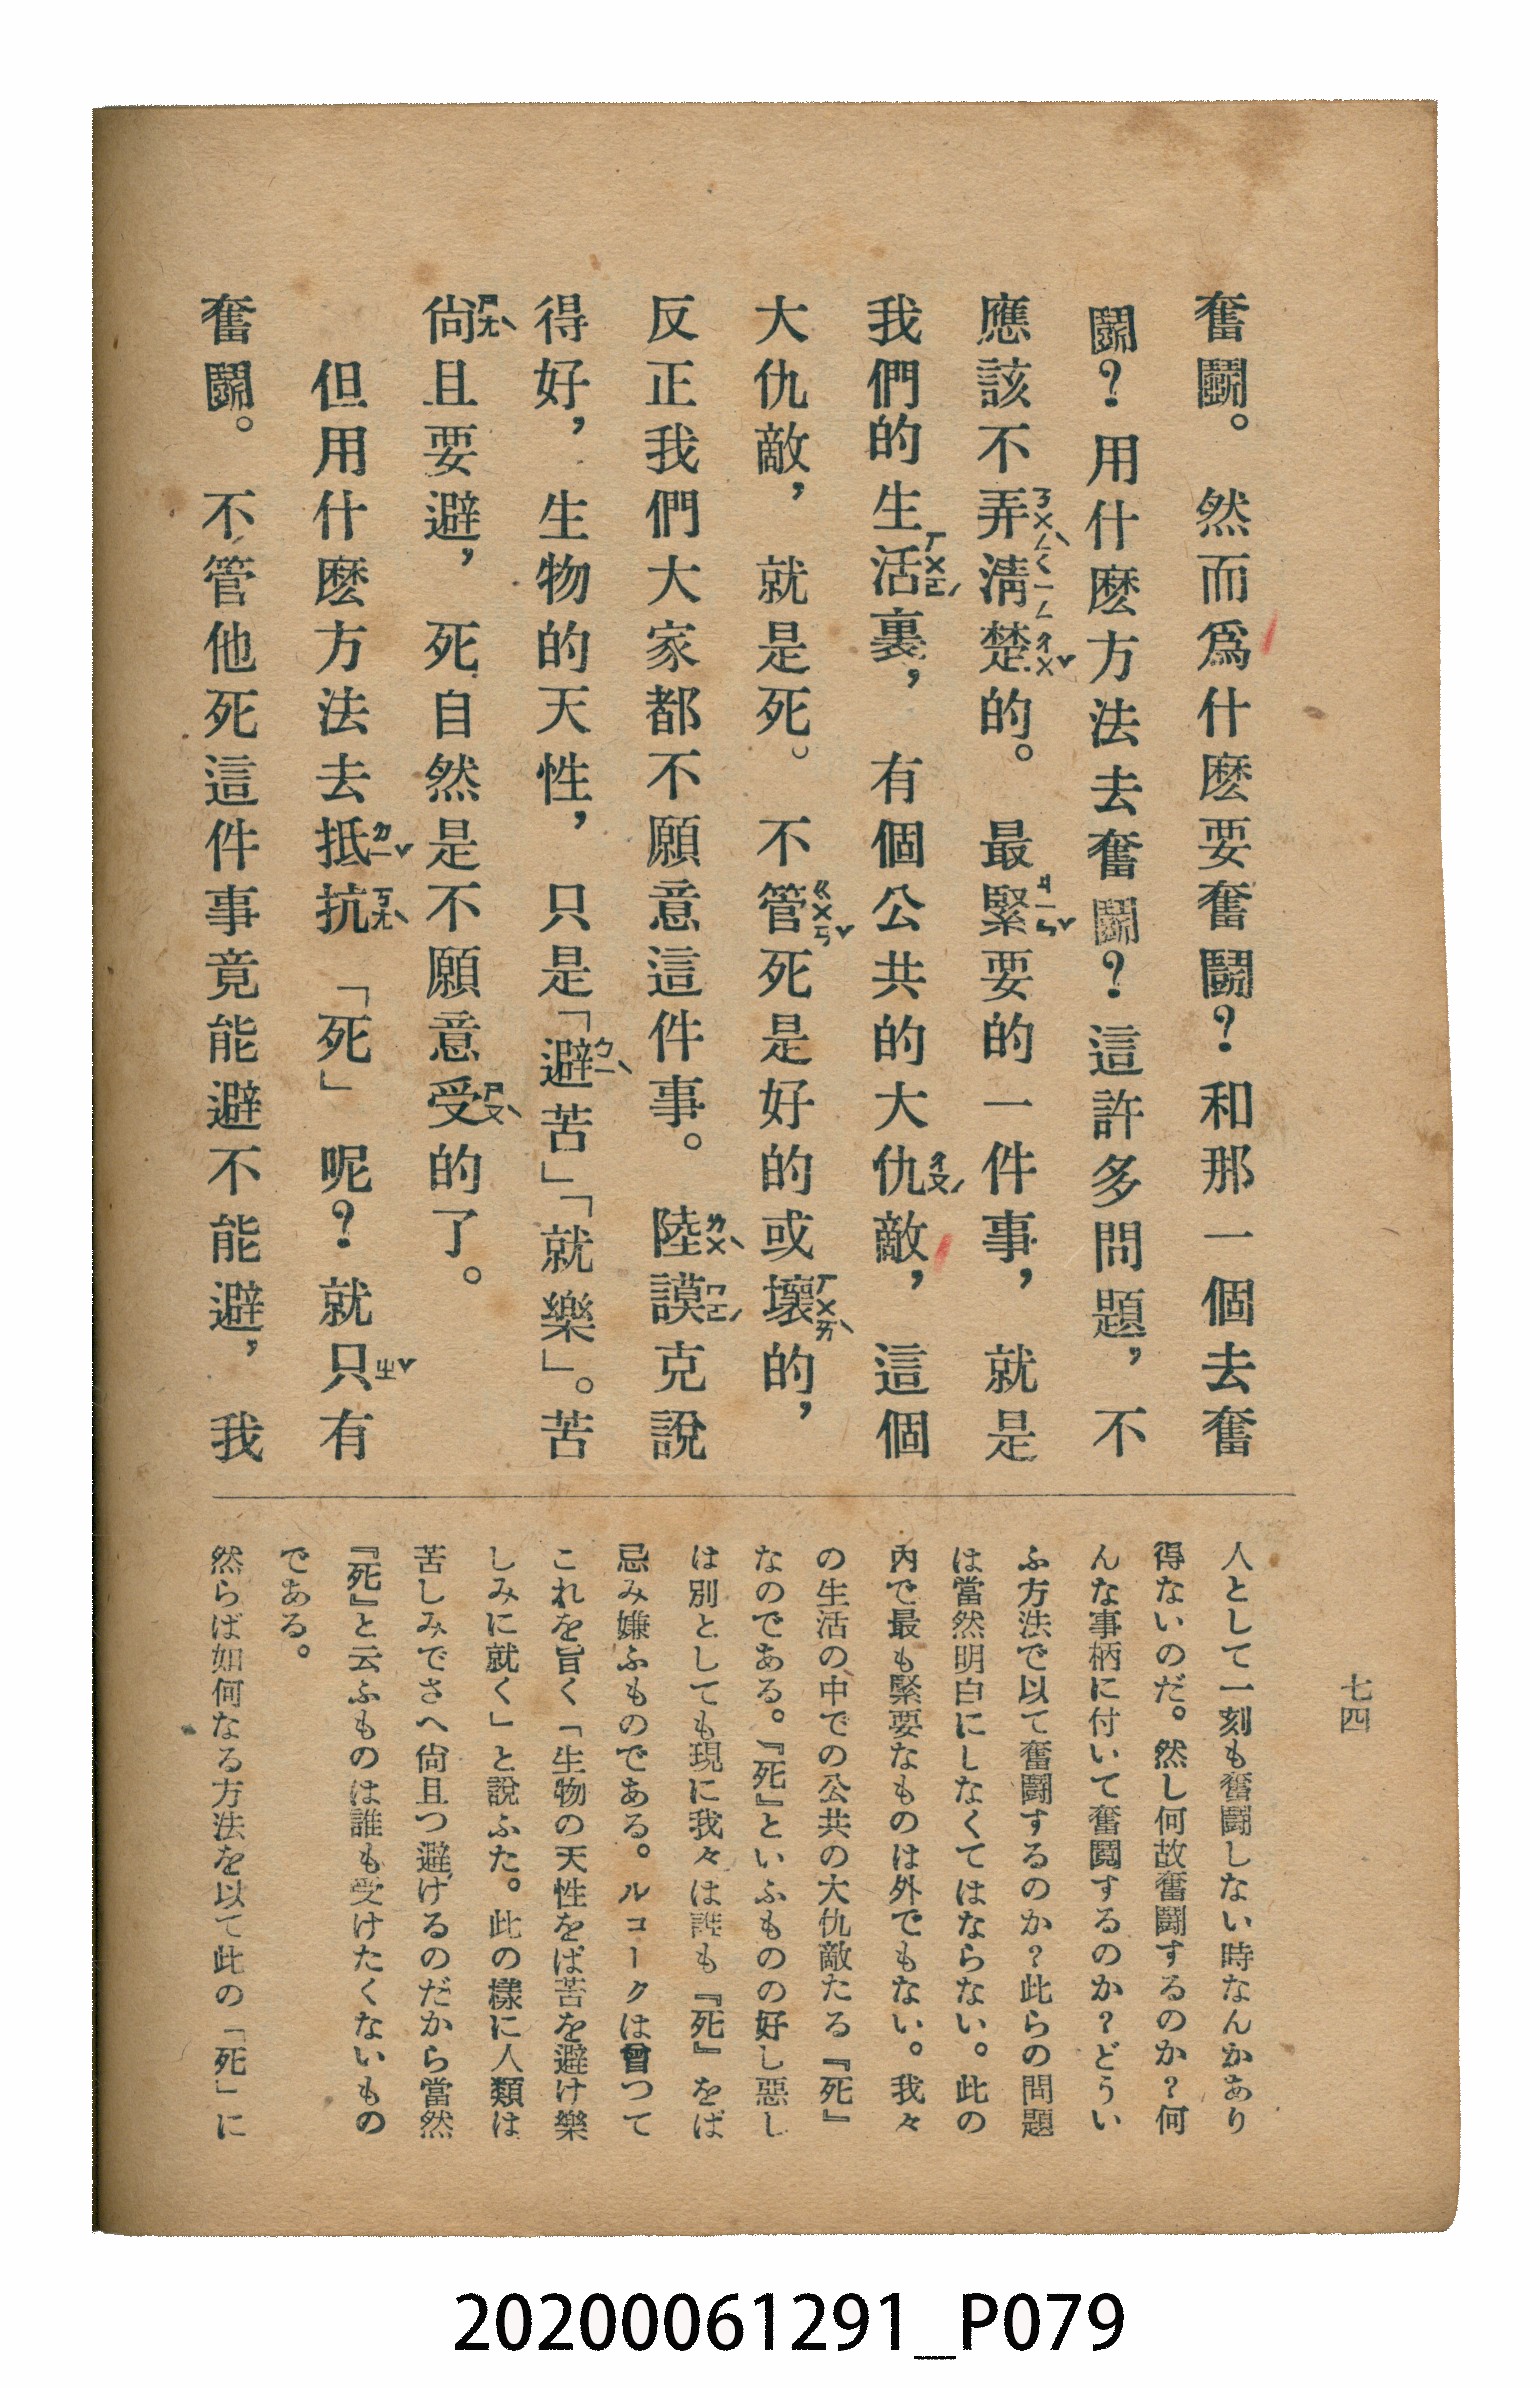 奮鬪。然而爲什麽要奮鬪？和那一個去奮
鬪？用什麽方法去奮鬪？這許多問題，不
應該不弄ㄋㄨㄥˋ淸ㄑㄧㄥ楚ㄔㄨˇ的。最緊ㄐㄧㄣˇ要的一件事，就是
我們的生活ㄏㄨㄛˊ裏，有個公共的大仇ㄔㄡˊ敵，這個
大仇敵，就是死。不管ㄍㄨㄢˇ死是好的或壞ㄏㄨㄞˋ的，
反正我們大家都不願意這件事。陸ㄌㄨˋ謨ㄇㄛˊ克說
得好，生物的天性，只是「避ㄅㄧˋ苦」「就樂」。苦
尙ㄕㄤˋ且要避，死自然是不願意受ㄕㄡˋ的了。
但用什麽方法去抵ㄉㄧˇ抗ㄎㄤˋ「死」呢？就只ㄓˇ有
奮鬪。不管他死這件事竟能避不能避，我
七四
人として一刻も奮鬪しない時なんかあり
得ないのだ。然し何故奮鬪するのか？何
んな事柄に付いて奮鬪するのか？どうい
ふ方法で以て奮鬪するのか？此らの問題
は當然明白にしなくてはならない。此の
內で最も緊要なものは外でもない。我々
の生活の中での公共の大仇敵たる『死』
なのである。『死』といふものの好し惡し
は別としても現に我々は誰も『死』をば
忌み嫌ふものである。ルコークは曾つて
これを旨く「生物の天性をば苦を避け樂
しみに就く」と說ふた。此の樣に人類は
苦しみでさへ尙且つ避けるのだから當然
『死』と云ふものは誰も受けたくないもの
である。
然らば如何なる方法を以て此の「死」に
20200061291_P079